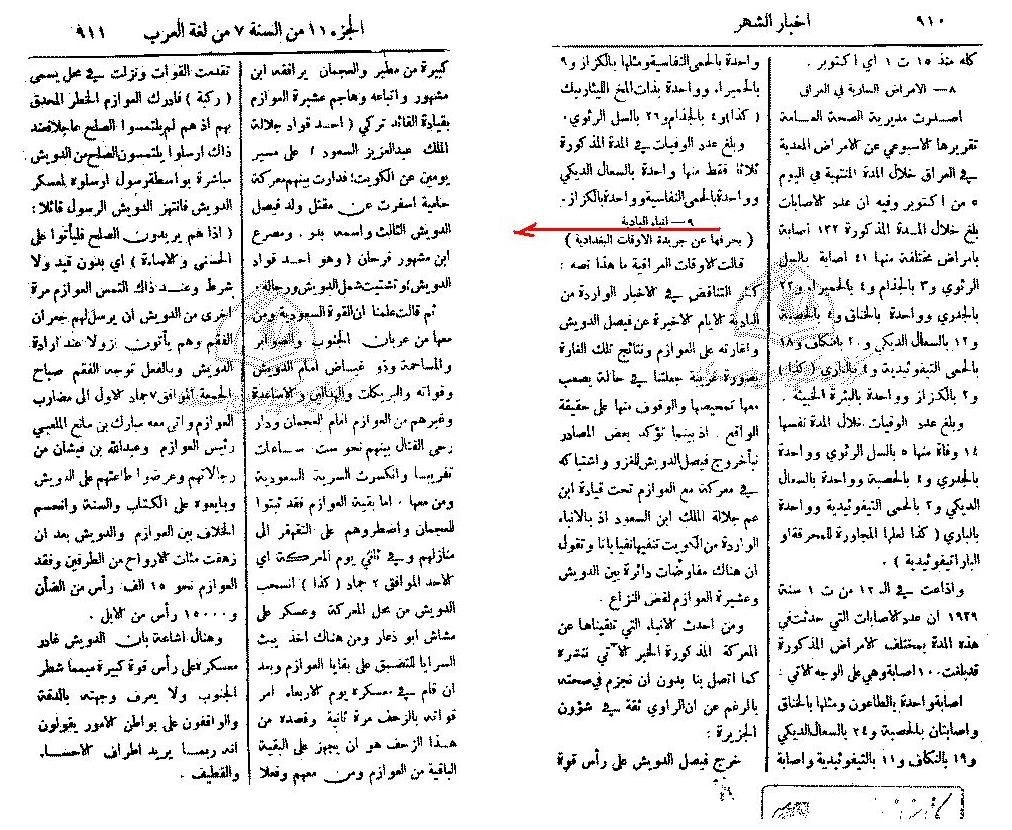 ٩١٠
اخبار الشهر
كله منذ ١٥ ت ١ اي اكتوبر .
٨ — الامراض السارية في العراق
اصدرت مديرية الصحة العامة
تقريرها الاسبوعي عن الامراض المعدية
في العراق خلال المدة المنتهية في اليوم
٥ من اكتوبر وفيه ان عدد الاصابات
بلغ خلال المدة المذكورة ١٣٢ اصابة
بامراض مختلفة منها ٤١ اصابة بالسل
الرئوي و٣ بالجذام و٤ بالحميراء و٢٢
بالجدري وواحدة بالخناق و٤ بالحصبة
و١٢ بالسعال الديكي و٢٠ بالنكاف و١٨
بالحمى التيفوئيدية و٤ بالباري ( كذا )
و٢ بالكزاز وواحدة بالبثرة الخبيثة .
وبلغ عدد الوفيات خلال المدة نفسها
١٤ وفاة منها ٥ بالسل الرئوي وواحدة
بالجدري و٤ بالحصبة وواحدة بالسعال
الديكي و٢ بالحمى التيفوئيدية وواحدة
بالباري ( كذا لعلها المجاورة للمحرقة او
الباراتيفوئيدية ) .
واذاعت في الـ ١٢ من ت ١ سنة
١٩٢٩ ان عدد الاصابات التي حدثت في
هذه المدة بمختلف الامراض المذكورة
قد بلغت ١٠٠ اصابة وهي على الوجه الآتي :
اصابة واحدة بالطاعون ومثلها بالخناق
واصابتان بالحصبة و٢٤ بالسعال الديكي
و١٩ بالنكاف و١١ بالتيفوئيدية واصابة
واحدة بالحمى النفاسية ومثلها بالكزاز و٩
بالحميراء وواحدة بذات المخ الليثارجيك
( كذا ) و٤ بالجذام و٢٦ بالسل الرئوي .
وبلغ عدد الوفيات في المدة المذكورة
ثلاثا فقط منها واحدة بالسعال الديكي
وواحدة بالحمى النفاسية وواحدة بالكزاز .
٩ — انباء البادية
( بحرفها عن جريدة الاوقات البغدادية )
قالت الاوقات العراقية ما هذا نصه :
كثر التناقض في الاخبار الواردة من
البادية الايام الاخيرة عن فيصل الدويش
واغارته على العوازم ونتائج تلك الغارة
بصورة غريبة جعلتنا في حالة يصعب
معها تمحيصها والوقوف منها على حقيقة
الواقع . اذ بينما تؤكد بعض المصادر
نبأ خروج فيصل الدويش للغزو واشتباكه
في معركة مع العوازم تحت قيادة ابن
عم جلالة الملك ابن السعود اذ بالانباء
الواردة من الكويت تنفيها نفيا باتا وتقول
ان هناك مفاوضات دائرة بين الدويش
وعشيرة العوازم لفض النزاع .
ومن احدث الانباء التي تلقيناها عن
المعركة المذكورة الخبر الآتي ننشره
كما اتصل بنا بدون ان نجزم في صحته
بالرغم عن ان الراوي ثقة في شؤون
الجزيرة :
خرج فيصل الدويش على رأس قوة
الجزء ١١ من السنة ٧ من لغة العرب
٩١١
كبيرة من مطير والعجمان يرافقه ابن
مشهور واتباعه وهاجم عشيرة العوازم
بقيادة القائد تركي ( احد قواد جلالة
الملك عبدالعزيز السعود ) على مسير
يومين عن الكويت ؛ فدارت بينهم معركة
حامية اسفرت عن مقتل ولد فيصل
الدويش الثالث واسمه بدو . ومصرع
ابن مشهور فرحان ( وهو احد قواد
الدويش ) وتشتيت شمل الدويش ورجاله .
ثم قالت علمنا ان القوة السعودية ومن
معها من عربان الجنوب والصوابر
والمساحمة وذو غياض امام الدويش
وقواته والبريكات والهدالين والاساعدة
وغيرهم من العوازم امام العجمان ودار
رحى القتال بينهم نحو ست ساعات
تقريبا وانكسرت السرية السعودية
ومن معها . اما بقية العوازم فقد ثبتوا
للعجمان واضطروهم على التقهقر الى
منازلهم وفي ثاني يوم المعركة اي
الاحد الموافق ٢ جماد ( كذا ) انسحب
الدويش من محل المعركة وعسكر على
مشاش ابو ذعار ومن هناك اخذ يبث
السرايا للتضيق على بقايا العوازم وبعد
ان قام في معسكره يوم الاربعاء امر
قواته بالزحف مرة ثانية وقصده من
هذا الزحف هو ان يجهز على البقية
الباقية من العوازم ومن معهم وفعلا
تقدمت القوات ونزلت في محل يسمى
( ركبة ) فادرك العوازم الخطر المحدق
بهم اذ هم لم يلتمسوا الصلح عاجلا فعند
ذاك ارسلوا يلتمسون الصلح من الدويش
مباشرة بواسطة رسول ارسلوه لمعسكر
الدويش فانتهز الدويش الرسول قائلا :
( اذا هم يريدون الصلح فليأتوا على
الحسنى والاساءة ) اي بدون قيد ولا
شرط وعند ذاك التمس العوازم مرة
اخرى من الدويش ان يرسل لهم جعران
الفقم وهم يأتون نزولا عند ارادة
الدويش وبالفعل توجه الفقم صباح
الجمعة الموافق ٧ جماد الاول الى مضارب
العوازم واتى معه مبارك بن مانع الملعبي
رئيس العوازم وعبدالله بن فيشان من
رجالاتهم وعرضوا طاعتهم على الدويش
وبايعوه على الكتاب والسنة وانحسم
الخلاف بين العوازم والدويش بعد ان
زهقت مئات الارواح من الطرفين وفقد
العوازم نحو ١٥ الف رأس من الضأن
و١٥٠٠٠ رأس من الابل .
وهنال اشاعة بان الدويش غادر
معسكره على رأس قوة كبيرة ميمما شطر
الجنوب ولا يعرف وجهته بالدقة
والواقفون على بواطن الامور يقولون
انه ربما يريد اطراف الاحساء
والقطيف .